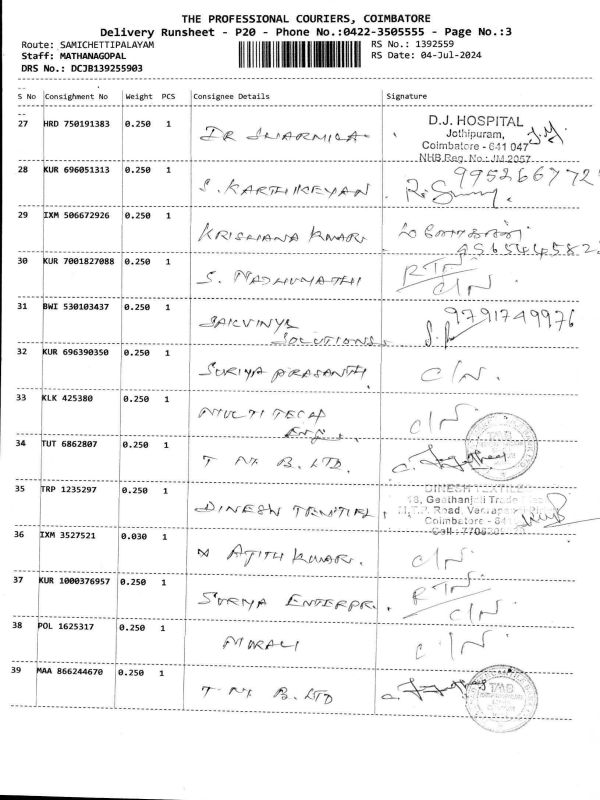 THE PROFESSIONAL COURIERS, COIMBATORE
Delivery Runsheet - P20 - Phone No.:0422-3505555 - Page No.:3
Route: SAMICHETTIPALAYAM
RS No.: 1392559
Staff: MATHANAGOPAL
RS Date: 04-Jul-2024
DRS No.: DCJB139255903
S No Consighment No Weight PCS Consignee Details Signature
27 HRD 750191383 0.250 1 DR SHARMILA
D.J. HOSPITAL
Jothipuram,
Coimbatore - 641 047
NHB Reg. No.: JM 2057
28 KUR 696051313 0.250 1 S. KARTHIKEYAN
29 IXM 506672926 0.250 1 KRISHANA KUMAR
30 KUR 7001827088 0.250 1 S. MADHUMATHI RTN
C/N.
31 BWI 530103437 0.250 1 SAKVINYS
SOLUTIONS 9791749976
32 KUR 696390350 0.250 1 SURIYA PRASANTH C/N.
33 KLK 425380 0.250 1 MULTI TECH
ENG. C/N.
34 TUT 6862807 0.250 1 T. M. B. LTD.
35 TRP 1235297 0.250 1 DINESH
DINESH TEXTILES
18, Geethanjali
M.T.P. Road,
Coimbatore - 641
36 IXM 3527521 0.030 1 AJITH KUMAR. C/N.
37 KUR 1000376957 0.250 1 SURYA ENTERPR. RTN
C/N.
38 POL 1625317 0.250 1 MURALI C/N.
39 MAA 866244670 0.250 1 T. M. B. LTD
TMB